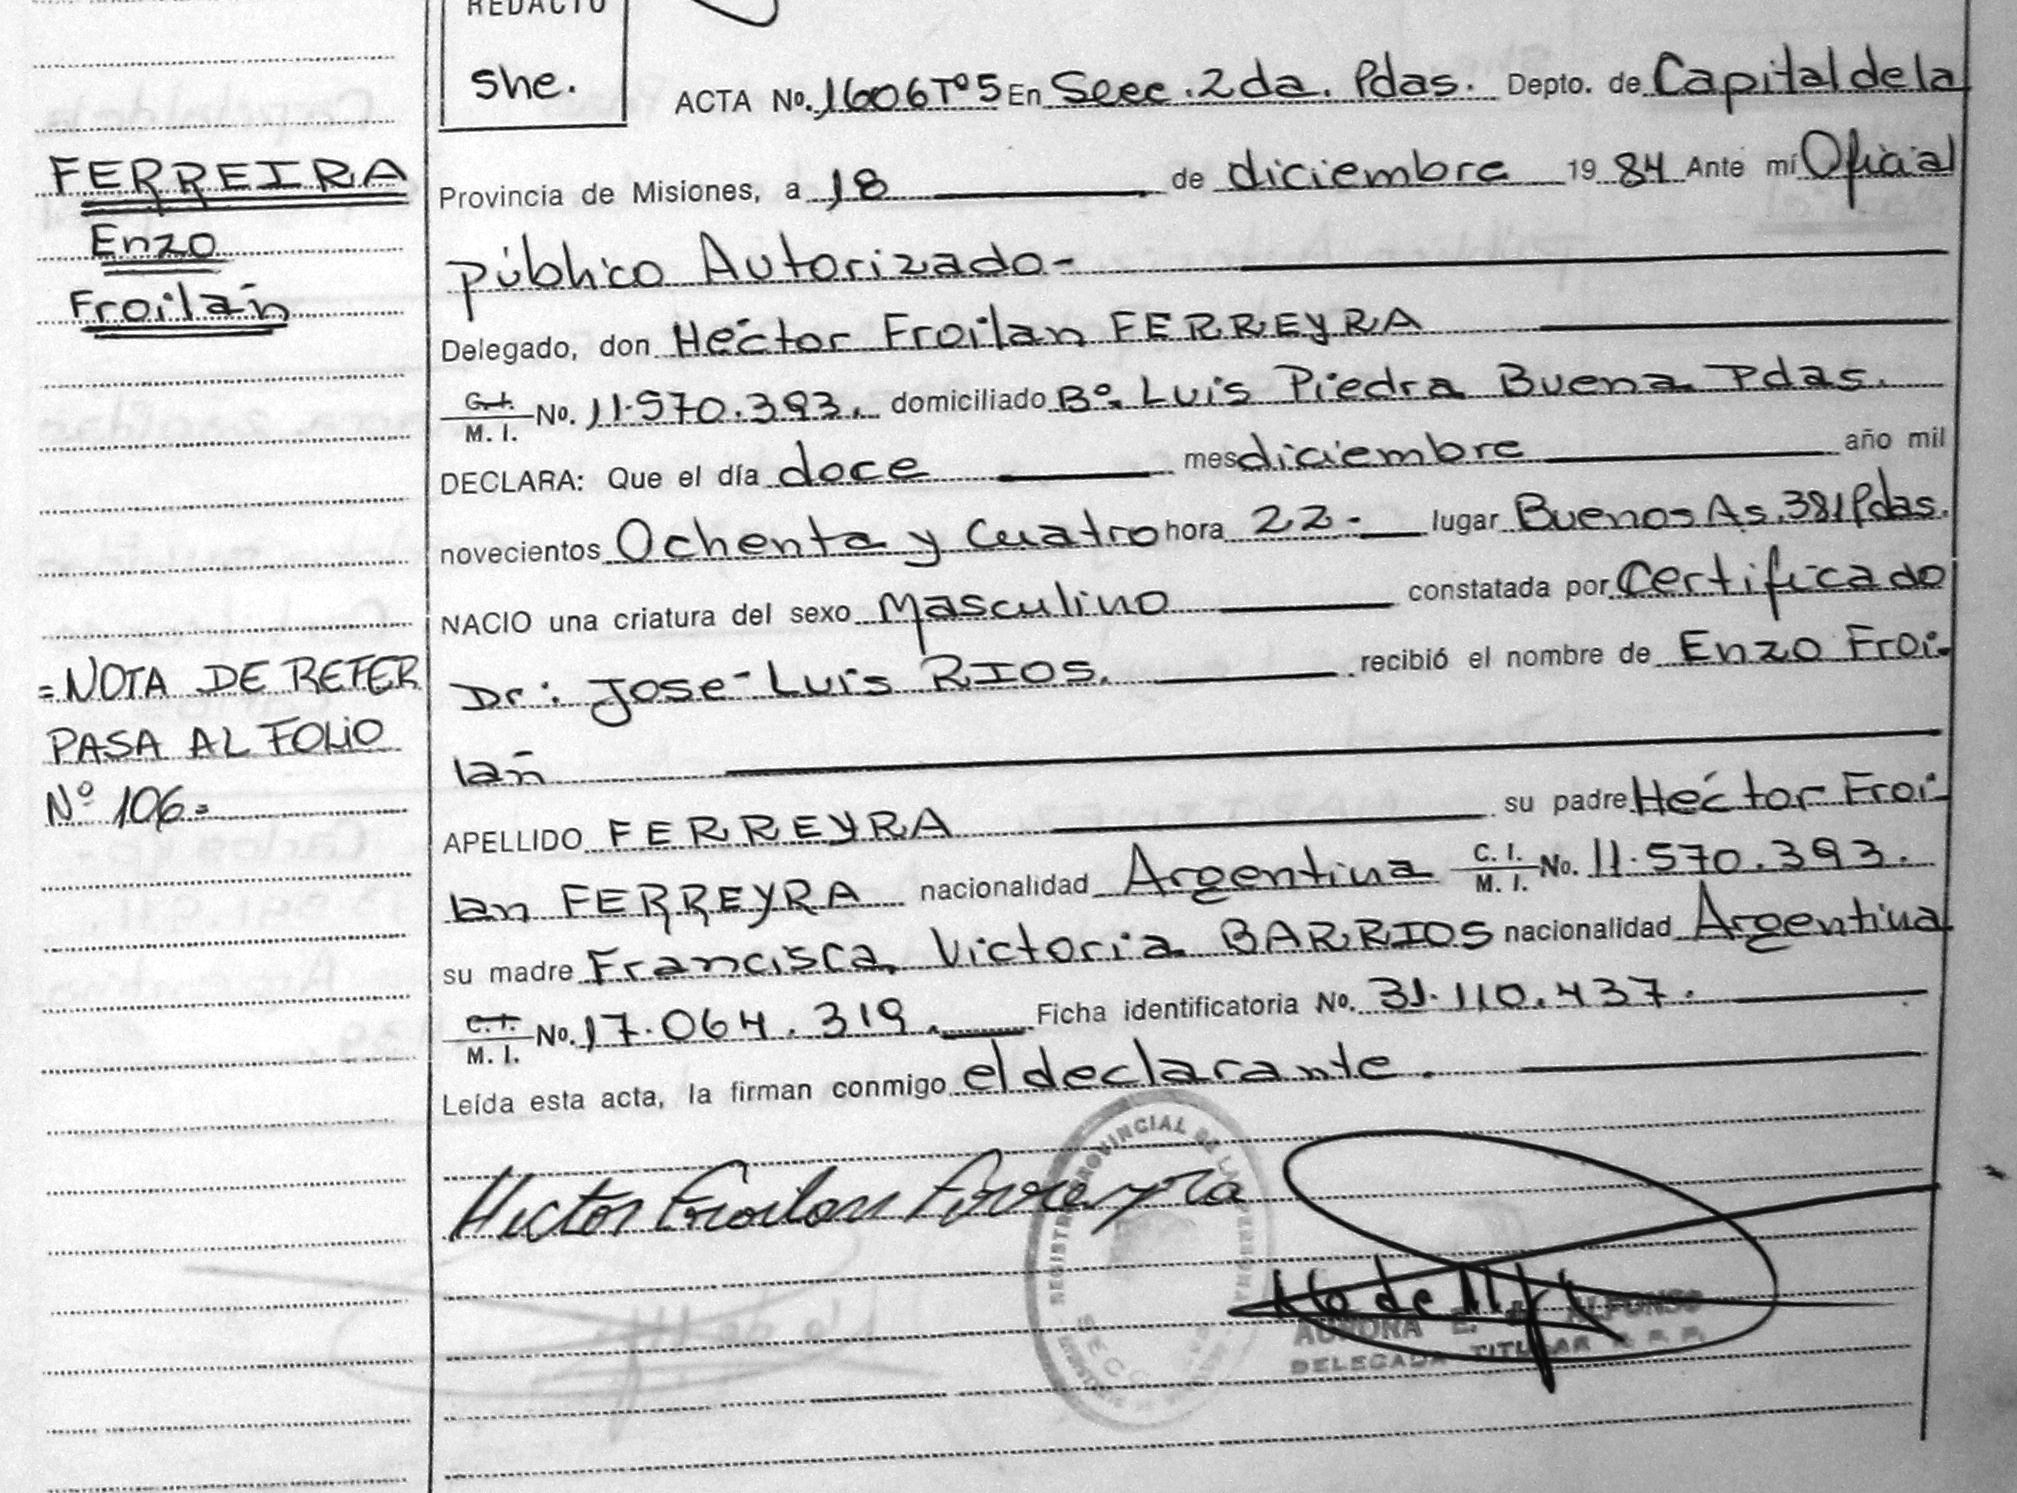 REDACTO
She.
ACTA No. 1606 Tº 5 En Secc. 2da. Pdas. Depto. de Capital de la
Provincia de Misiones, a 18 de diciembre 19 84 Ante mí Oficial
público Autorizado-
Delegado, don Héctor Froilan FERREYRA
C.I. / M. I. No. 11.570.393. domiciliado Bº. Luis Piedra Buena Pdas.
DECLARA: Que el día doce mes diciembre año mil
novecientos Ochenta y Cuatro hora 22.- lugar Buenos As. 381 Pdas.
NACIO una criatura del sexo Masculino constatada por Certificado
Dr: Jose Luis RIOS. recibió el nombre de Enzo Froi-
lan
APELLIDO FERREYRA su padre Héctor Froi-
lan FERREYRA nacionalidad Argentina C. I. / M. I. No. 11.570.393.
su madre Francisca Victoria BARRIOS nacionalidad Argentina
C.I. / M. I. No. 17.064.319. Ficha identificatoria No. 31.110.437.
Leída esta acta, la firman conmigo el declarante.
Hector Froilan Ferreyra
REGISTRO PROVINCIAL DE LAS PERSONAS
AURORA E. ALFONSO
DELEGADA TITULAR R. P. P.
FERREIRA
Enzo
Froilán
=NOTA DE REFER
PASA AL FOLIO
Nº 106=